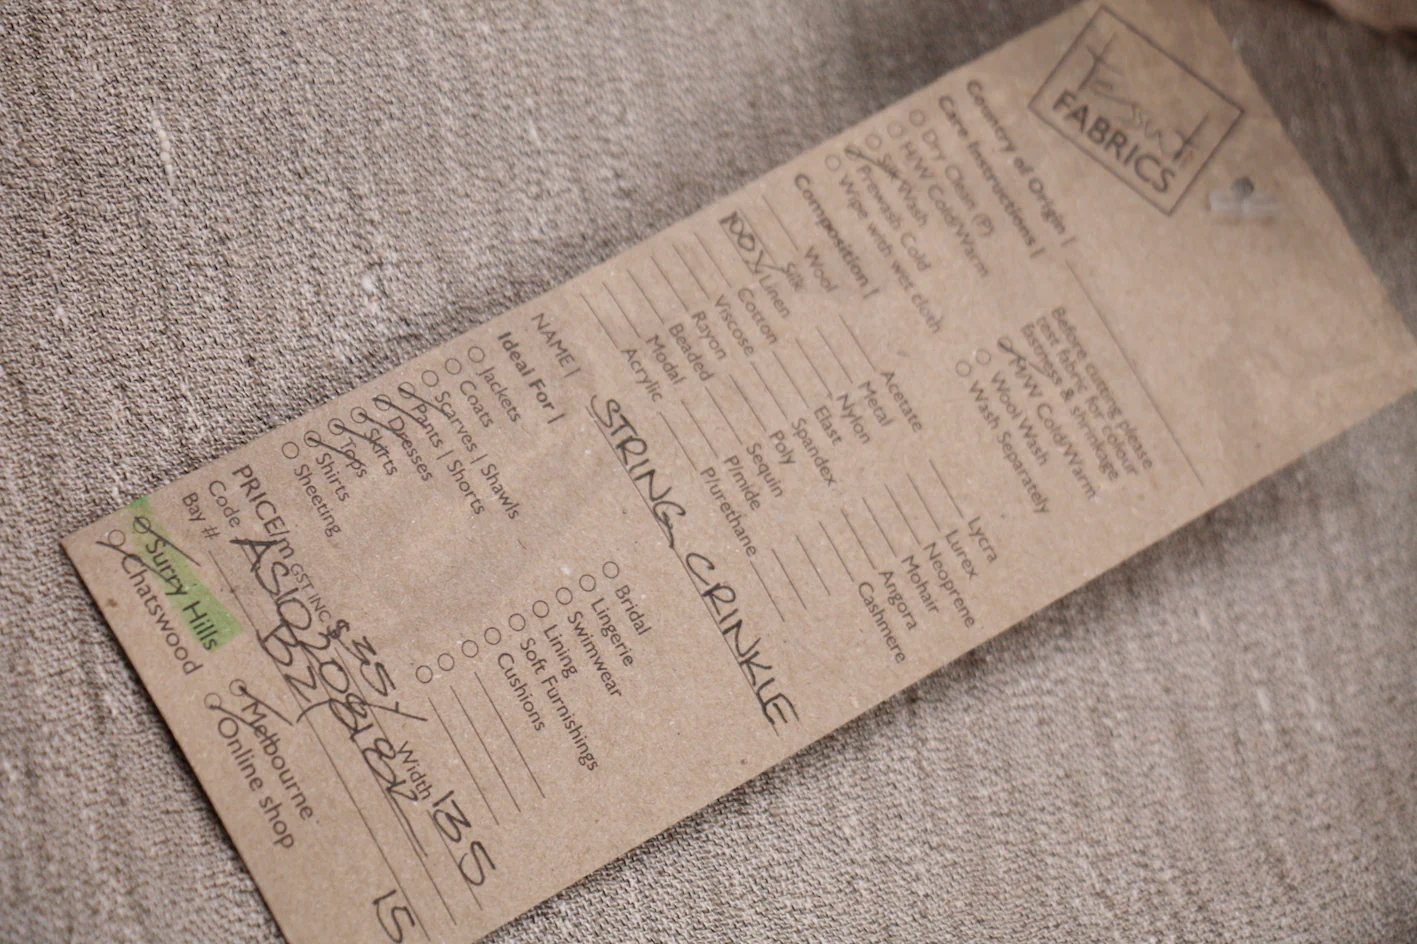 Tessuti
FABRICS
Country of Origin |
Care Instructions |
Dry Clean (P)
H/W Cold/Warm
Silk Wash
Prewash Cold
Wipe with wet cloth
Before cutting please
test fabric for colour
fastness & shrinkage
M/W Cold/Warm
Wool Wash
Wash Separately
Composition |
Wool
Silk
100% Linen
Cotton
Viscose
Rayon
Beaded
Modal
Acrylic
Acetate
Metal
Nylon
Elast
Spandex
Poly
Sequin
P/mide
P/urethane
Lycra
Lurex
Neoprene
Mohair
Angora
Cashmere
NAME | STRING CRINKLE
Ideal For |
Jackets
Coats
Scarves | Shawls
Pants | Shorts
Dresses
Skirts
Tops
Shirts
Sheeting
Bridal
Lingerie
Swimwear
Lining
Soft Furnishings
Cushions
PRICE/m GST INC $ 35/ Width 135
Code
Bay # B2 15
Surry Hills
Chatswood
Melbourne
Online shop